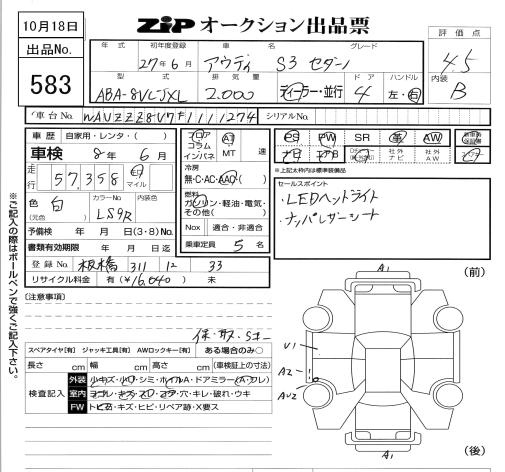 10月18日
ZIP オークション出品票
出品No.
583
評価点
4.5
内装
B
年式 初年度登録 車名 グレード
27年6月 アウディ S3 セダン
型式 排気量 ドア ハンドル
ABA-8VCJXL 2.000 ディーラー・並行 4 左・右
車台No. WAUZZZ8V7F1111274 シリアルNo.
車歴 自家用・レンタ・( )
車検 8年6月
走行 57,358 km マイル
色 白 カラーNo. LS9R 内装色
(元色)
予備検 年 月 日(3・8)No.
書類有効期限 年 月 日迄
登録No. 板橋 311 12 33
リサイクル料金 有(¥16,040) 未
フロア AT
コラム
インパネ MT 速
冷房
無・C・AC・AAC・( )
燃料
ガソリン・軽油・電気・
その他( )
Nox 適合・非適合
乗車定員 5 名
PS PW SR 革 AW
社外ナビ 社外AW
※上記太枠内は標準装備品
セールスポイント
・LEDヘッドライト
・ナッパレザーシート
※ご記入の際はボールペンで強くご記入下さい。
[注意事項]
スペアタイヤ[有] ジャッキ工具[有] AWロックキー[有] ある場合のみ○
長さ cm 幅 cm 高さ cm (車検証上の寸法)
検査記入
外装 小キズ・小凹・シミ・ホイルA・ドアミラー(A・ワレ)
室内 ヨゴレ・キズ・スレ・コゲ・穴・キレ・破れ・ウキ
FW トビ石・キズ・ヒビ・リペア跡・X要ス
(前)
A1
U1
A2
AU2
A1
(後)